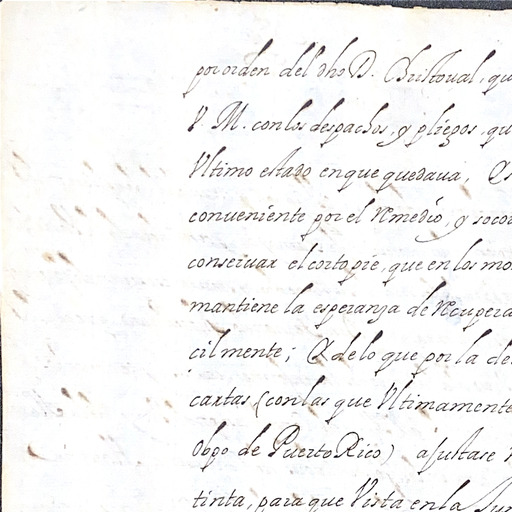 por orden del dho D. Christoual, qu
V. M. con los despachos, y pliegos, qu
Vltimo estado en que quedaua,
conueniente por el remedio, y socor
conseruar el corto pie, que en los mo
mantiene la esperanza de recupera
cilmente; de lo que por la de
cartas (con las que Vltimamente
Obpo de Puerto Rico) ajustase
tinta, para que Vista en la Jun